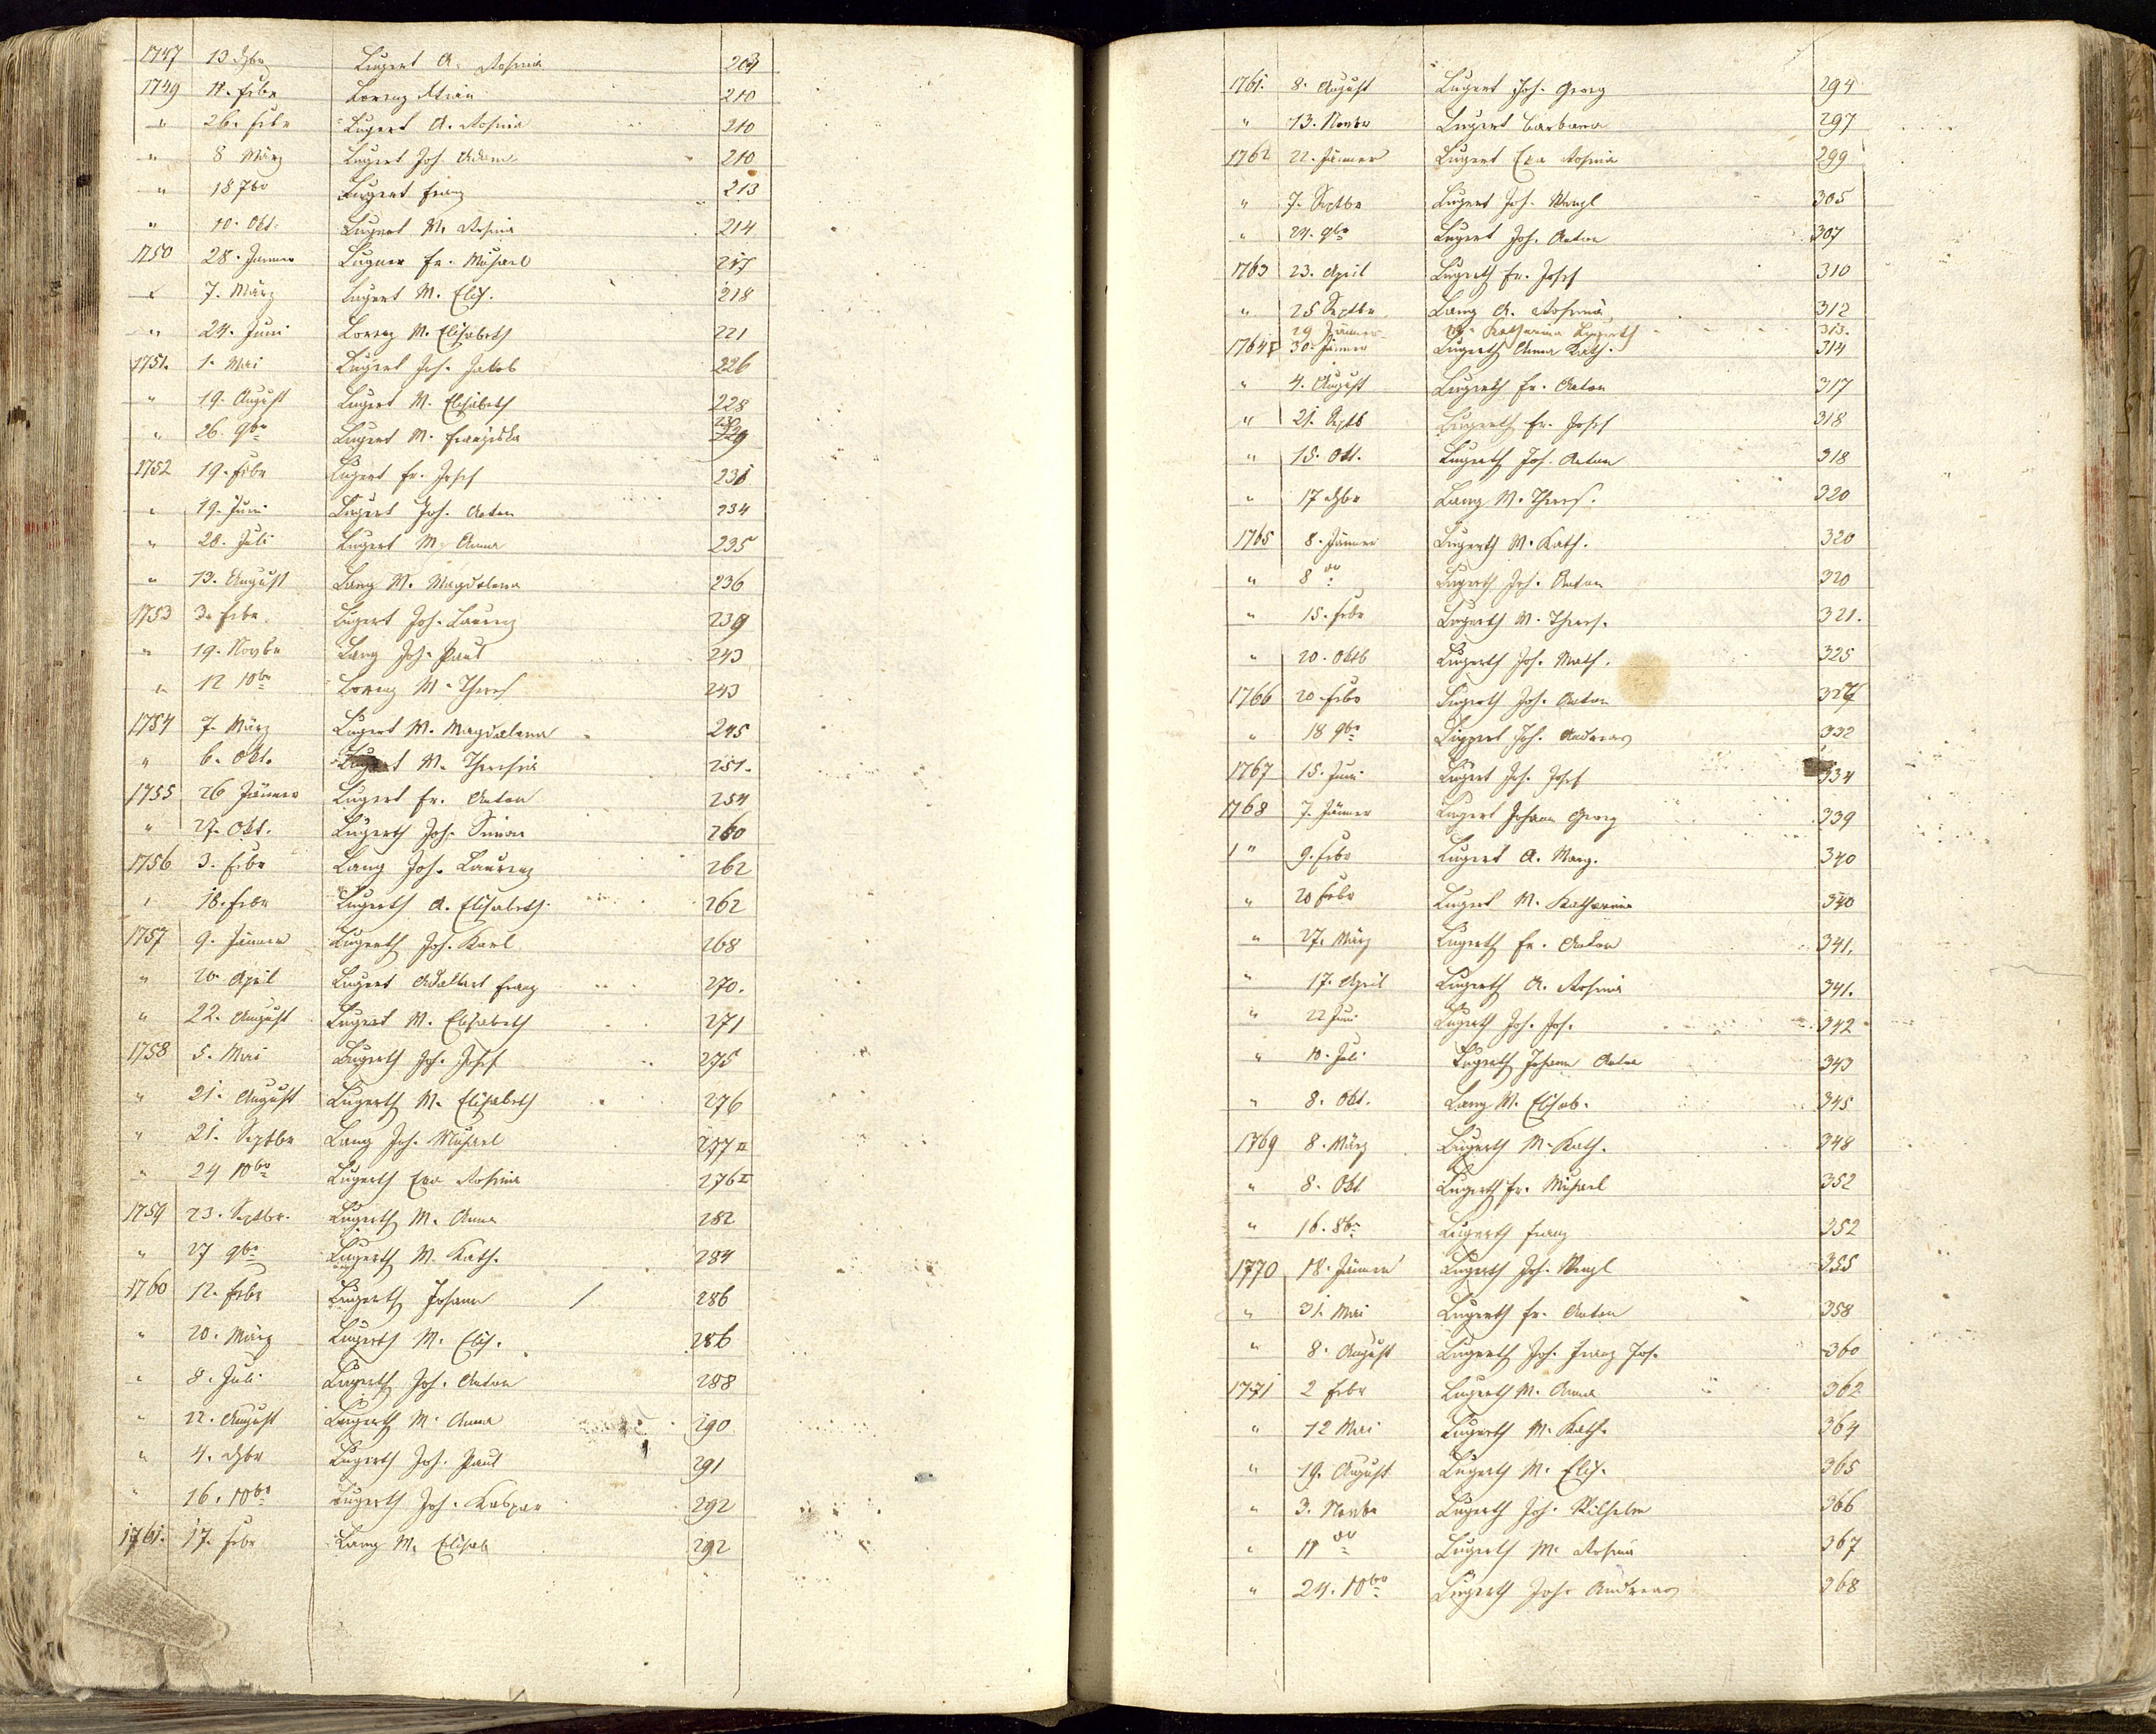 1747 13 Xbr Lugert A. Rosina 204
1749 11. Febr Lorenz 210
" 26. Febr Lugert A. Rosina 210
" 8 März Lugert Joh. Adam 210
" 18 7br Lugert Franz 213
" 10. Okt. Lugert M. Rosina 214
1750 28. Jänner Lugner Fr. Michael 217
" 7. März Lugert M. Elis. 218
" 24. Juni Lorenz M. Elisabeth 221
1751. 1. Mai Lugert Joh. Jakob 226
" 19. August Lugert M. Elisabeth 228
" 26. 9br Lugert M. Franziska 229
1752 19. Febr Lugert Fr. Josef 231
" 19. Juni Lugert Joh. Anton 234
" 20. Juli Lugert M. Anna 235
" 13. August Lang M. Magdalena 236
1753 3. Febr. Lugert Joh. Laurenz 239
" 19. Novbr Lang Joh. Paul 243
" 12 10br Lorenz M. Theres 243
1754 7. März Lugert M. Magdalena 245
" 6. Okt. Lugert M. Theresia 251.
1755 26 Jänner Lugert Fr. Anton 254
" 27. Okt. Lugerth Joh. Simon 260
1756 3. Febr Lang Joh. Laurenz 262
" 18. Febr Lugerth A. Elisabeth 262
1757 9. Jänner Lugerth Joh. Karl 268
" 20. April Lugert Adalbert Franz 270.
" 22. August Lugert M. Elisabeth 271
1758 5. Mai Lugerth Joh. Josef 275
" 21. August Lugerth M. Elisabeth 276
" 21. Septbr Lang Joh. Michael 277 II
" 24 10br Lugerth Eva Rosina 276 I
1759 23. Septbr. Lugerth M. Anna 282
" 27 9br Lugerth M. Kath. 284
1760 12. Febr Lugerth Johann / 286
" 20. März Lugerth M. Elis. 286
" 8. Juli Lugerth Joh. Anton 288
" 22. August Lugerth M. Anna 290
" 4. Xbr Lugerth Joh. Paul 291
" 16. 10br Lugerth Joh. Kaspar 292
1761. 17. Febr Lang M. Elisab 292
1761. 8. August Lugert Joh. Georg 294
" 13. Novbr Lugert Barbara 297
1762 22. Jänner Lugert Eva Rosina 299
" 7. Septbr Lugert Joh. Wenzl 305
" 24. 9br Lugert Joh. Anton 307
1763 23. April Lugerth Fr. Josef 310
" 25 Septbr Lang A. Rosina 312
29 Jänner M. Katharina Lugerth 313.
1764 30. Jänner Lugerth Anna Kath. 314
" 4. August Lugerth Fr. Anton 317
" 21. Septb Lugerth Fr. Josef 318
" 15. Okt. Lugerth Joh. Anton 318
" 17 Xbr Lang M. Theres. 320
1765 8. Jänner Lugerth M. Kath. 320
" 8 Lugerth Joh. Anton 320
" 15. Febr Lugerth M. Theres. 321.
" 20. Oktb Lugerth Joh. Math. 325
1766 20. Febr Lugerth Joh. Anton 327
" 18 9br Lippert Joh. Andreas 332
1767 15. Juni Lugert Joh. Josef 334
1768 7. Jänner Lugert Johann Georg 339
" 9. Febr Lugert A. Marg. 340
" 20 Febr Lugert M. Katharina 340
" 27. März Lugerth Fr. Anton 341.
" 17. April Lugerth A. Rosina 341.
" 22 Juni Lugerth Joh. Jos. 342
" 10. Juli Lugerth Johann Anton 343
" 8. Okt. Lang M. Elisab. 345
1769 8. März Lugerth M. Kath. 348
" 8. Okt. Lugerth Fr. Michael 352
" 16. 8br Lugerth Franz 352
1770 18. Jänner Lugerth Joh. Wenzl 355
" 31. Mai Lugerth Fr. Anton 358
" 8. August Lugerth Joh. Franz Jos. 360
1771 2 Febr Lugerth M. Anna 362
" 12 Mai Lugerth M. Kath. 364
" 19. August Lugerth M. Elis. 365
" 3. Novbr Lugerth Joh. Wilhelm 366
" 11 Lugerth M. Rosina 367
" 24. 10br Lugerth Joh. Andreas 368